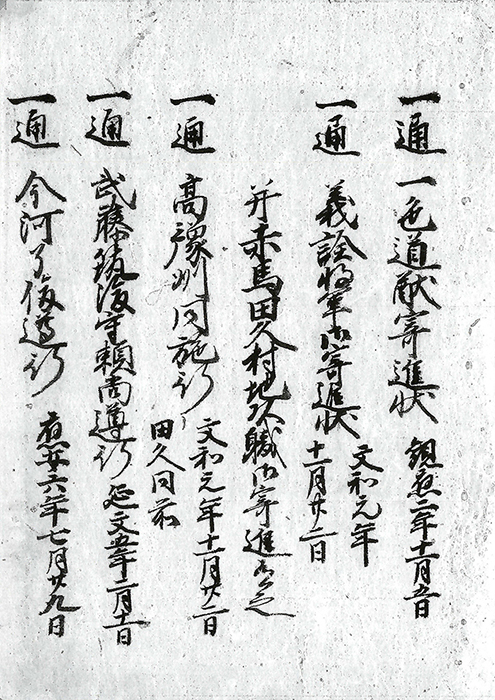 一通 一色道猷寄進状 観應二年十一月五日
一通 義詮将軍御寄進状 文和元年
十一月廿二日
并赤馬田久村地頭職御寄進
一通 高豫州同施行 文和元年十二月廿二日
田久同前
一通 武藤筑後守頼尚遵行 延文五年二月十一日
一通 今河了俊遵行 應安六年七月廿九日